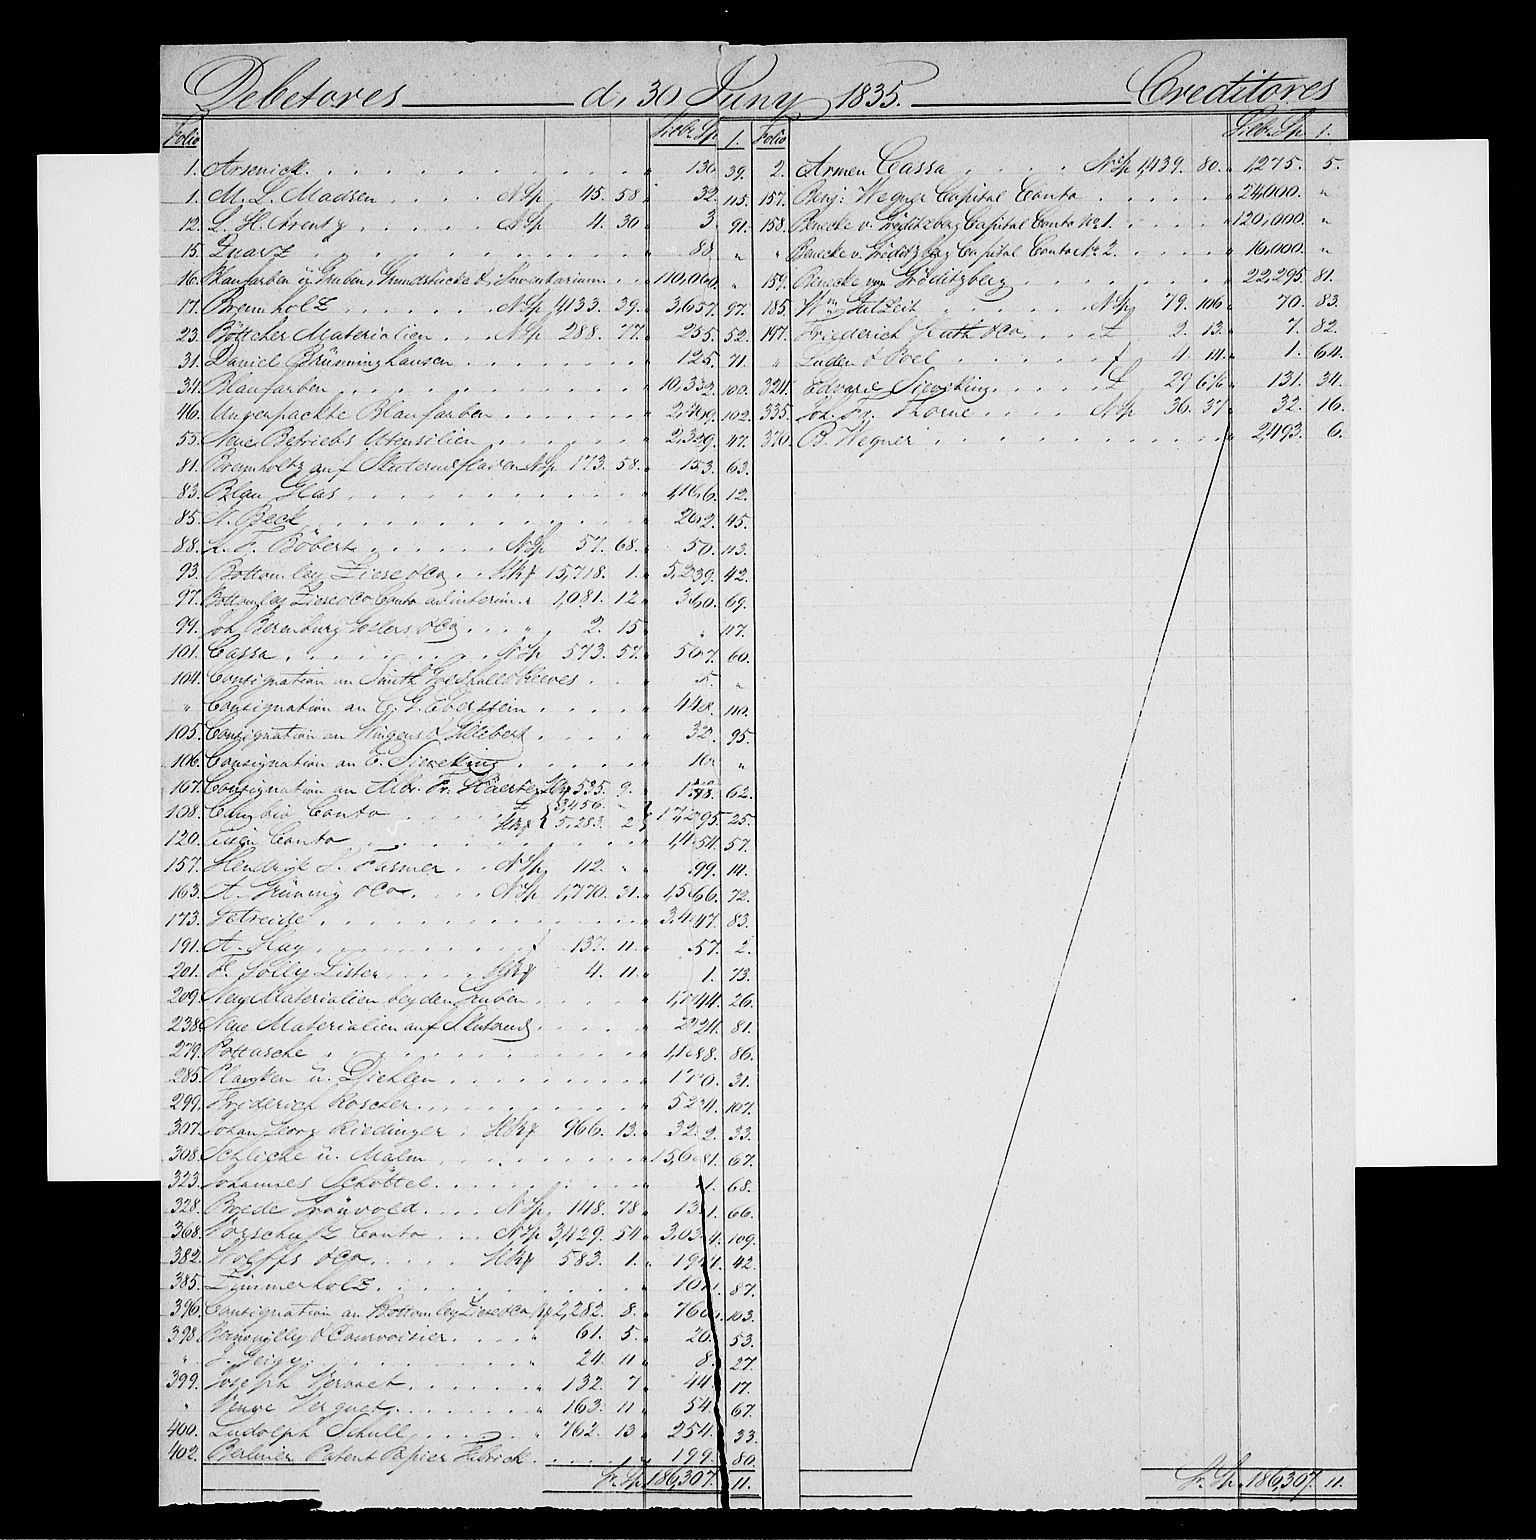 Debetores d. 30 Juny 1835. Creditores
Folio Silbr. Sp. 1. Folio Silbr. Sp. 1.
1. Arsenick 136 39.
1. M. L. Madsen NSp 45. 58 32. 115.
12. L. H. NSp 4. 30 3 91.
15. Quarz 88 "
16. Blaufarben u. Gruben, Grundstücke & Inventarium 110,000. "
17. Brennholz NSp 4,133. 39. 3,657. 97.
23. Böttcher Materialien NSp 288. 77. 255. 52.
31. Daniel Brünninghausen 125. 71.
34. Blaufarben 10,332. 100.
46. Unverpackte Blaufarben 102.
55. Neue Betriebs Utensilien 2,329. 47.
81. Brennholtz auf NSp 173. 58. 153. 63.
83. Blau Glas 12.
85. N. Beck 262. 45.
88. K. F. Böbert NSp 57. 68. 50. 113.
93. Bottomley Ziese & Co HBx 15,718. 1. 5,239. 42.
97. Bottomley Ziese & Co Conto ad interim " 1,081. 12 360. 69.
99. Joh. Berenburg Goslers & Co " 2. 15 " 117.
101. Cassa NSp 573. 57. 507. 60.
104. Consignation an Smith 5. "
" Consignation an C. G. Eberstein 448. 110.
105. Consignation an 32. 95.
106. Consignation an E. Sieveking 10. "
107. Consignation an Fr. HBx 535. 9. 178. 62.
108. Cambio Conto £ 3,456. " HBx 5,283. 2 25.
120. Conto 1,454. 57.
157. Hendrick S. Farmer NSp 112. " 99. 14.
163. A. Grüning & Co NSp 1,770. 31. 1,566. 72.
173. Getreide 3,447. 83.
191. A. Hay 137. 11. 57. 2.
201. F. Solly Lister HBx 4. 11. 1. 73.
209. Neue Materialien bey den Gruben 26.
238. Neue Materialien auf 81.
279. Pottasche 86.
285. Planken u. Diehlen 170. 31.
299. Friderich Roscher 524. 107.
307. Johan Georg Riedinger HBx 966. 13. 322. 33.
308. Schliche u. Malm 67.
323. Johannes Schöttel 1. 68.
328. Brede NSp 148. 78 131. 66.
368. Vorschuss Conto NSp 3,429. 54 3,034. 109.
382. Wolffs & Co HBx 583. 1. 194. 42.
385. Zimmerholz 87.
396. Consignation an Bottomley Ziese & Co 2,282. 8. 760. 103.
398. & Courvoisier " 61. 5. 20. 53.
" J. Geigy " 24. 11 8. 27.
399. Joseph " 132. 7 44. 17.
" " 163. 11 54. 67.
400. Ludolph Schull " 762. 13 254. 33.
402. Berliner Patent Papier Fabrick 199. 80.
Sp. 186,307. 11.
2. Armen Cassa NSp 1,439. 80. 1,275. 5.
157. Benj: Wegner Capital Conto 24,000. "
158. Benecke v. Gröditzberg Capital Conto No 1. 120,000. "
" Benecke v. Gröditzberg Capital Conto No 2. 16,000. "
159. Benecke von Gröditzberg 22,295. 81.
185. Wm Gutzeit NSp 79. 106 70. 83.
197. Friederich Huth & Co £ 2. 13. 7. 82.
" Luden & 4. 14. 1. 64.
324. Edvard Sieveking £ 29 6/6 131. 34.
335. Joh. Thorne NSp 36. 37 32. 16.
370. B. Wegner 2,493. 6.
Sp. 186,307. 11.